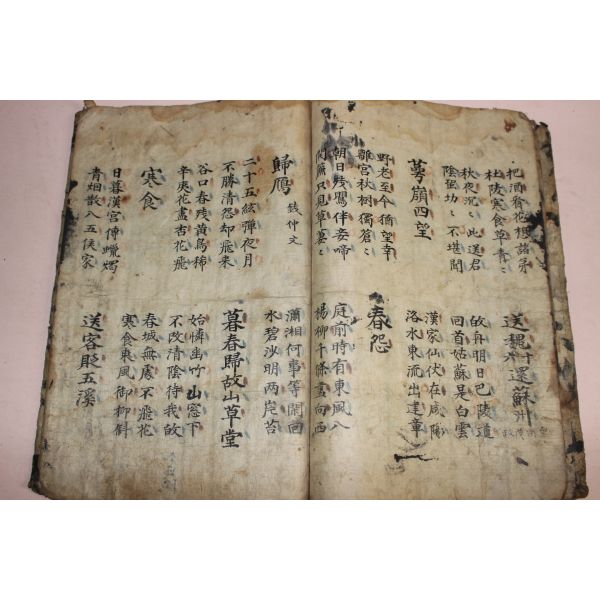 把酒看花想諸弟
杜陵寒食草青々
送魏十六還蘇州
秋夜沉々此送君
陰虫切々不堪聞
故舟明日巴陵道
回首姑蘇是白雲
四望
漢家仙伏在咸陽
洛水東流出建章
野老至今猶望幸
離宮秋樹獨蒼々
春怨
朝日殘鶯伴妾啼
開簾只見草萋々
庭前時有東風入
楊柳千條盡向西
歸鴈 錢仲文
瀟湘何事等閑回
水碧沙明兩岸苔
二十五絃彈夜月
不勝清怨却飛来
暮春歸故山草堂
谷口春殘黃鳥稀
辛夷花盡杏花飛
始憐幽竹山窓下
不改清陰待我故
寒食
春城無處不飛花
寒食東風御柳斜
日暮漢宮傳蠟燭
青烟散入五侯家
送客貶五溪